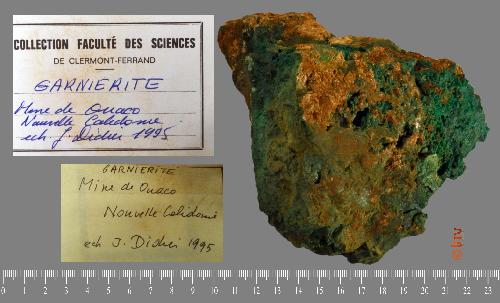 COLLECTION FACULTÉ DES SCIENCES
DE CLERMONT-FERRAND
GARNIERITE
Mine de Ouaco
Nouvelle Calédonie
ech J. Didier 1995
GARNIERITE
Mine de Ouaco
Nouvelle Calédonie
ech J. Didier 1995
0 1 2 3 4 5 6 7 8 9 10 11 12 13 14 15 16 17 18 19 20 21 22 23